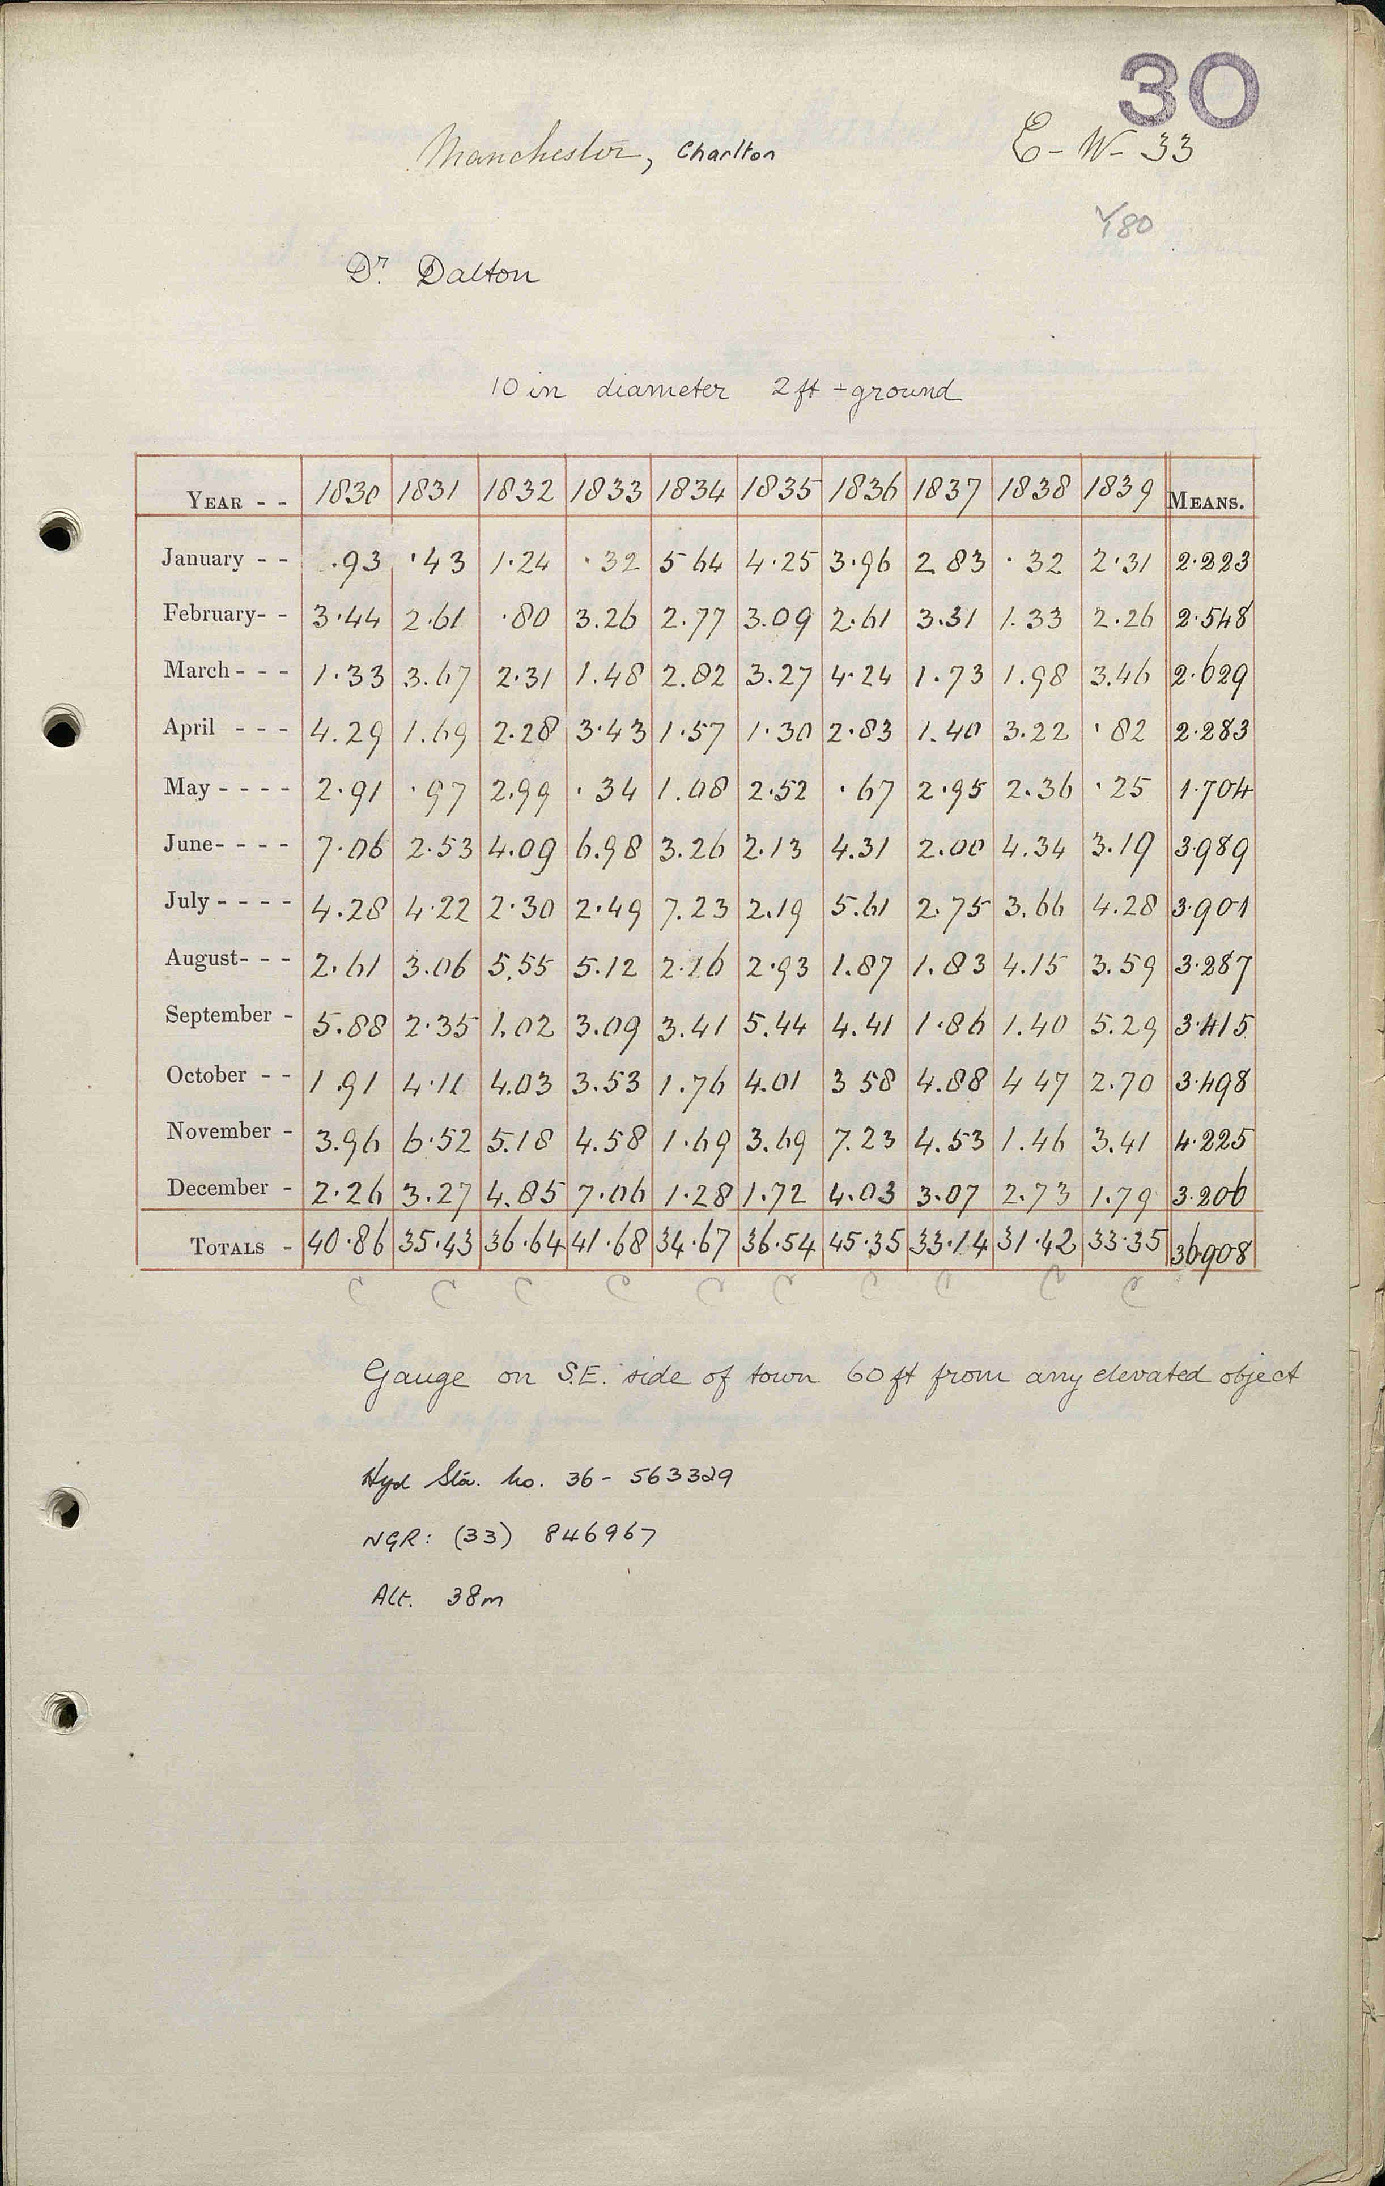 30
Manchester, Charlton E-W-33
Y80
Dr. Dalton
10 in diameter 2 ft + ground
YEAR - - 1830 1831 1832 1833 1834 1835 1836 1837 1838 1839 MEANS.
January - - .93 .43 1.24 .32 5 64 4.25 3.96 2 83 .32 2.31 2.223
February- - 3.44 2.61 .80 3.26 2.77 3.09 2.61 3.31 1.33 2.26 2.548
March - - - 1.33 3.67 2.31 1.48 2.82 3.27 4.24 1.73 1.98 3.46 2.629
April - - - 4.29 1.69 2.28 3.43 1.57 1.30 2.83 1.40 3.22 .82 2.283
May - - - - 2.91 .97 2.99 .34 1.08 2.52 .67 2.95 2.36 .25 1.704
June- - - - 7.06 2.53 4.09 6.98 3.26 2.13 4.31 2.00 4.34 3.19 3.989
July - - - - 4.28 4.22 2.30 2.49 7.23 2.19 5.61 2.75 3.66 4.28 3.901
August- - - 2.61 3.06 5.55 5.12 2.16 2.93 1.87 1.83 4.15 3.59 3.287
September - 5.88 2.35 1.02 3.09 3.41 5.44 4.41 1.86 1.40 5.29 3.415
October - - 1.91 4.11 4.03 3.53 1.76 4.01 3 58 4.88 4 47 2.70 3.498
November - 3.96 6.52 5.18 4.58 1.69 3.69 7.23 4.53 1.46 3.41 4.225
December - 2.26 3.27 4.85 7.06 1.28 1.72 4.03 3.07 2.73 1.79 3.206
TOTALS - 40.86 35.43 36.64 41.68 34.67 36.54 45.35 33.14 31.42 33.35 36.908
C C C C C C C C C C
Gauge on S.E. side of town 60 ft from any elevated object
Hyd Sta. No. 36- 563329
NGR: (33) 846967
Alt. 38m